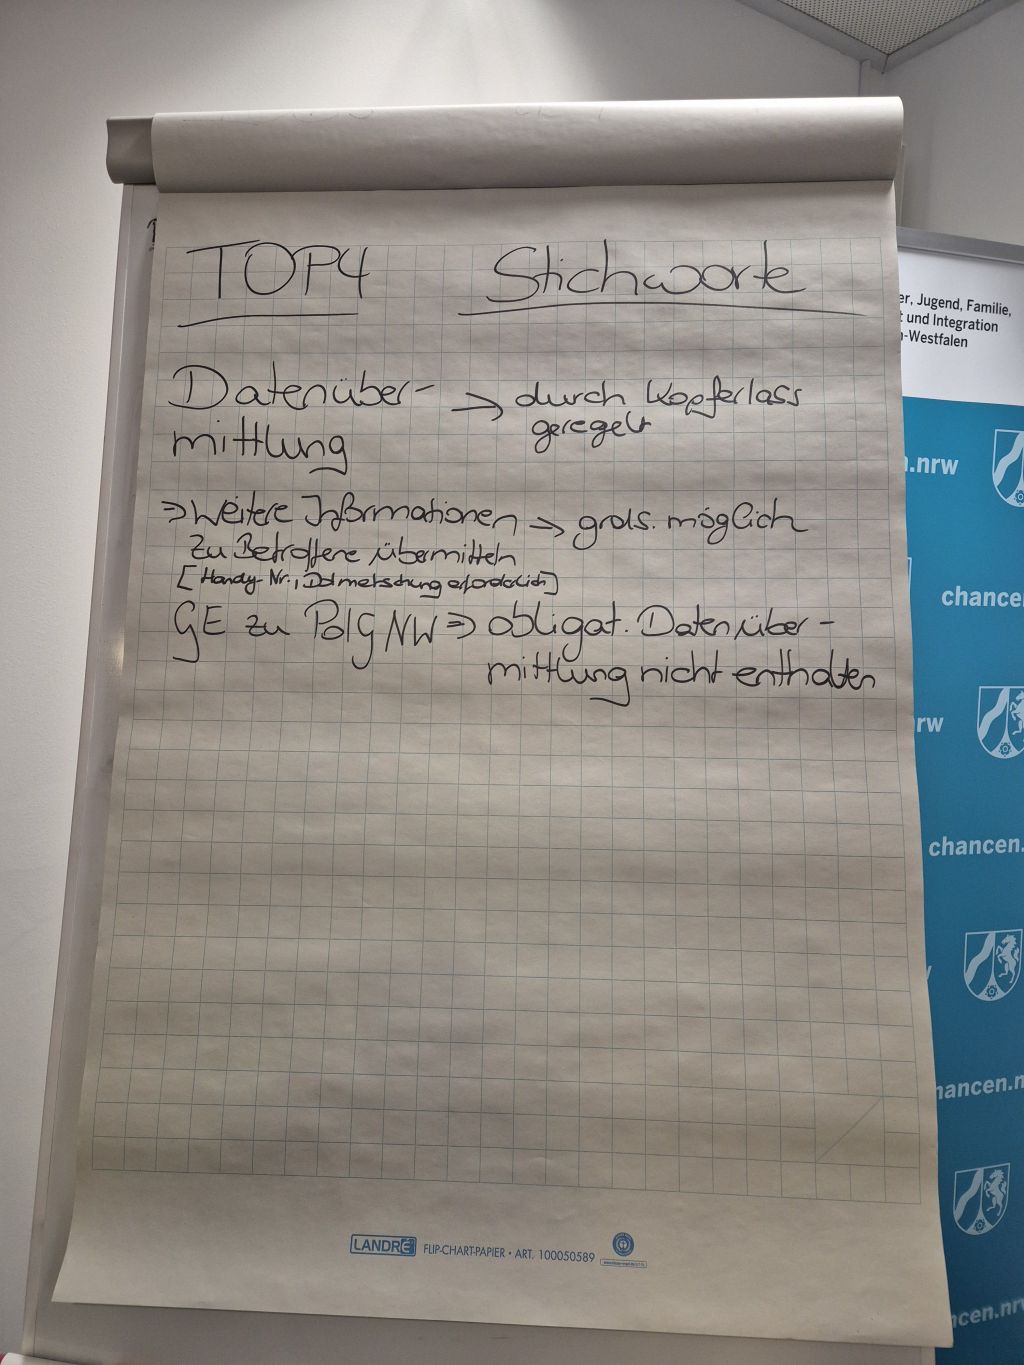 TOP4 Stichworte
Datenüber- → durch Kopferlass
mittlung geregelt
⇒ Weitere Informationen → grds. möglich
zu Betroffene übermitteln
[Handy-Nr., Dolmetschung erforderlich]
GE zu PolG NW ⇒ obligat. Datenüber-
mittlung nicht enthalten
LANDRÉ FLIP-CHART-PAPIER • ART. 100050589
er, Jugend, Familie,
t und Integration
n-Westfalen
n.nrw
chancen
nrw
chancen.
hancen.n
ncen.nrw